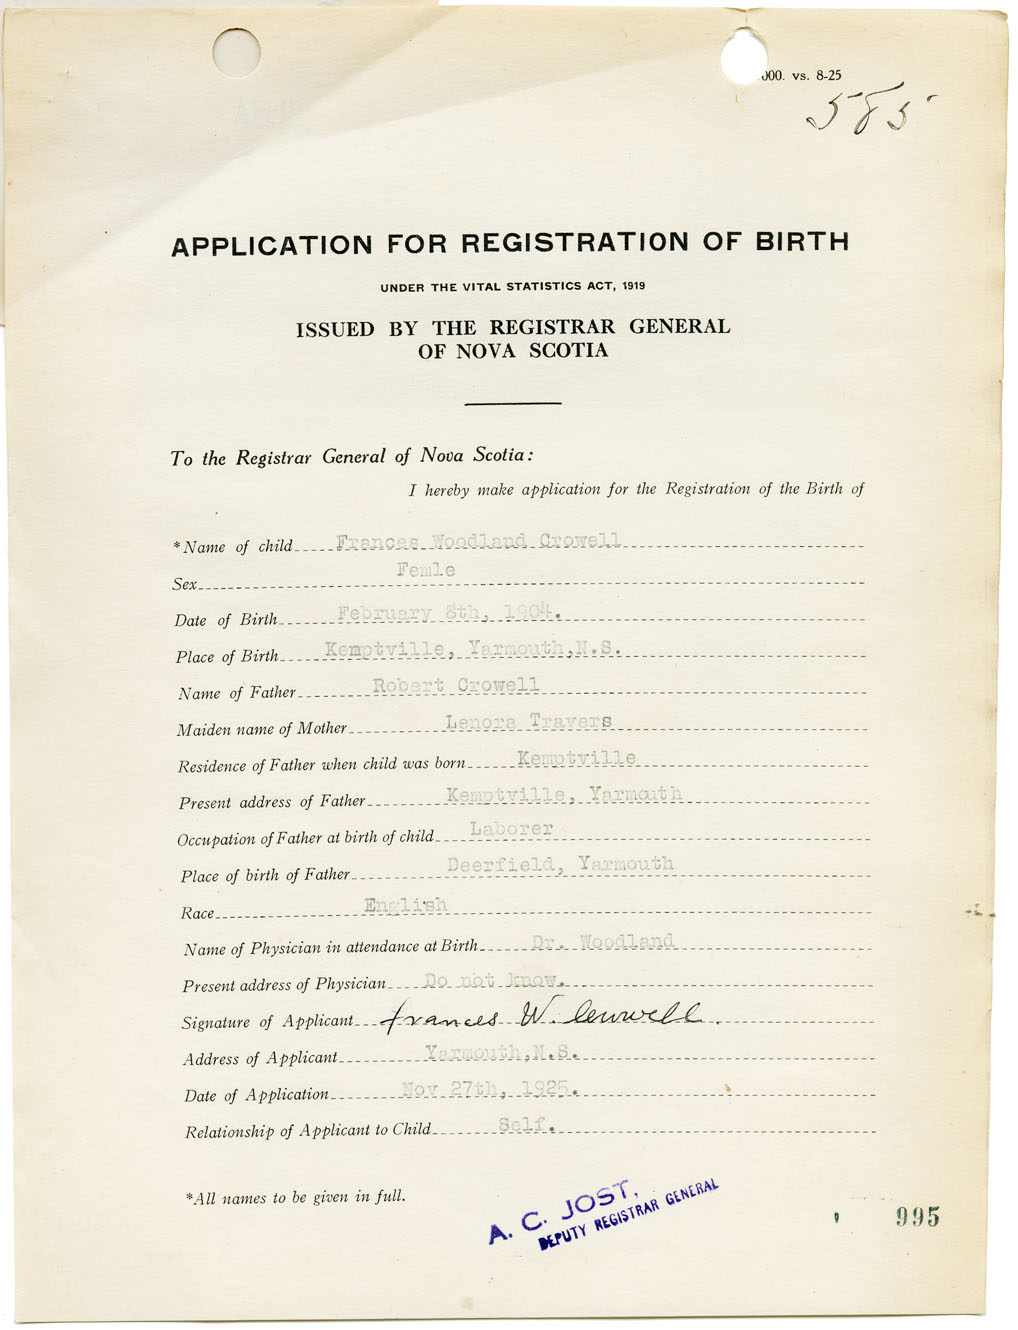 000. vs. 8-25
585
APPLICATION FOR REGISTRATION OF BIRTH
UNDER THE VITAL STATISTICS ACT, 1919
ISSUED BY THE REGISTRAR GENERAL
OF NOVA SCOTIA
To the Registrar General of Nova Scotia:
I hereby make application for the Registration of the Birth of
*Name of child Frances Woodland Crowell
Sex Femle
Date of Birth February 8th, 1904.
Place of Birth Kemptville, Yarmouth,N.S.
Name of Father Robert Crowell
Maiden name of Mother Lenora Travers
Residence of Father when child was born Kemptville
Present address of Father Kemptville, Yarmouth
Occupation of Father at birth of child Laborer
Place of birth of Father Deerfield, Yarmouth
Race English
Name of Physician in attendance at Birth Dr. Woodland
Present address of Physician Do not know.
Signature of Applicant Frances W. Crowell.
Address of Applicant Yarmouth,N.S.
Date of Application Nov 27th, 1925.
Relationship of Applicant to Child Self.
*All names to be given in full.
A. C. JOST,
DEPUTY REGISTRAR GENERAL
995